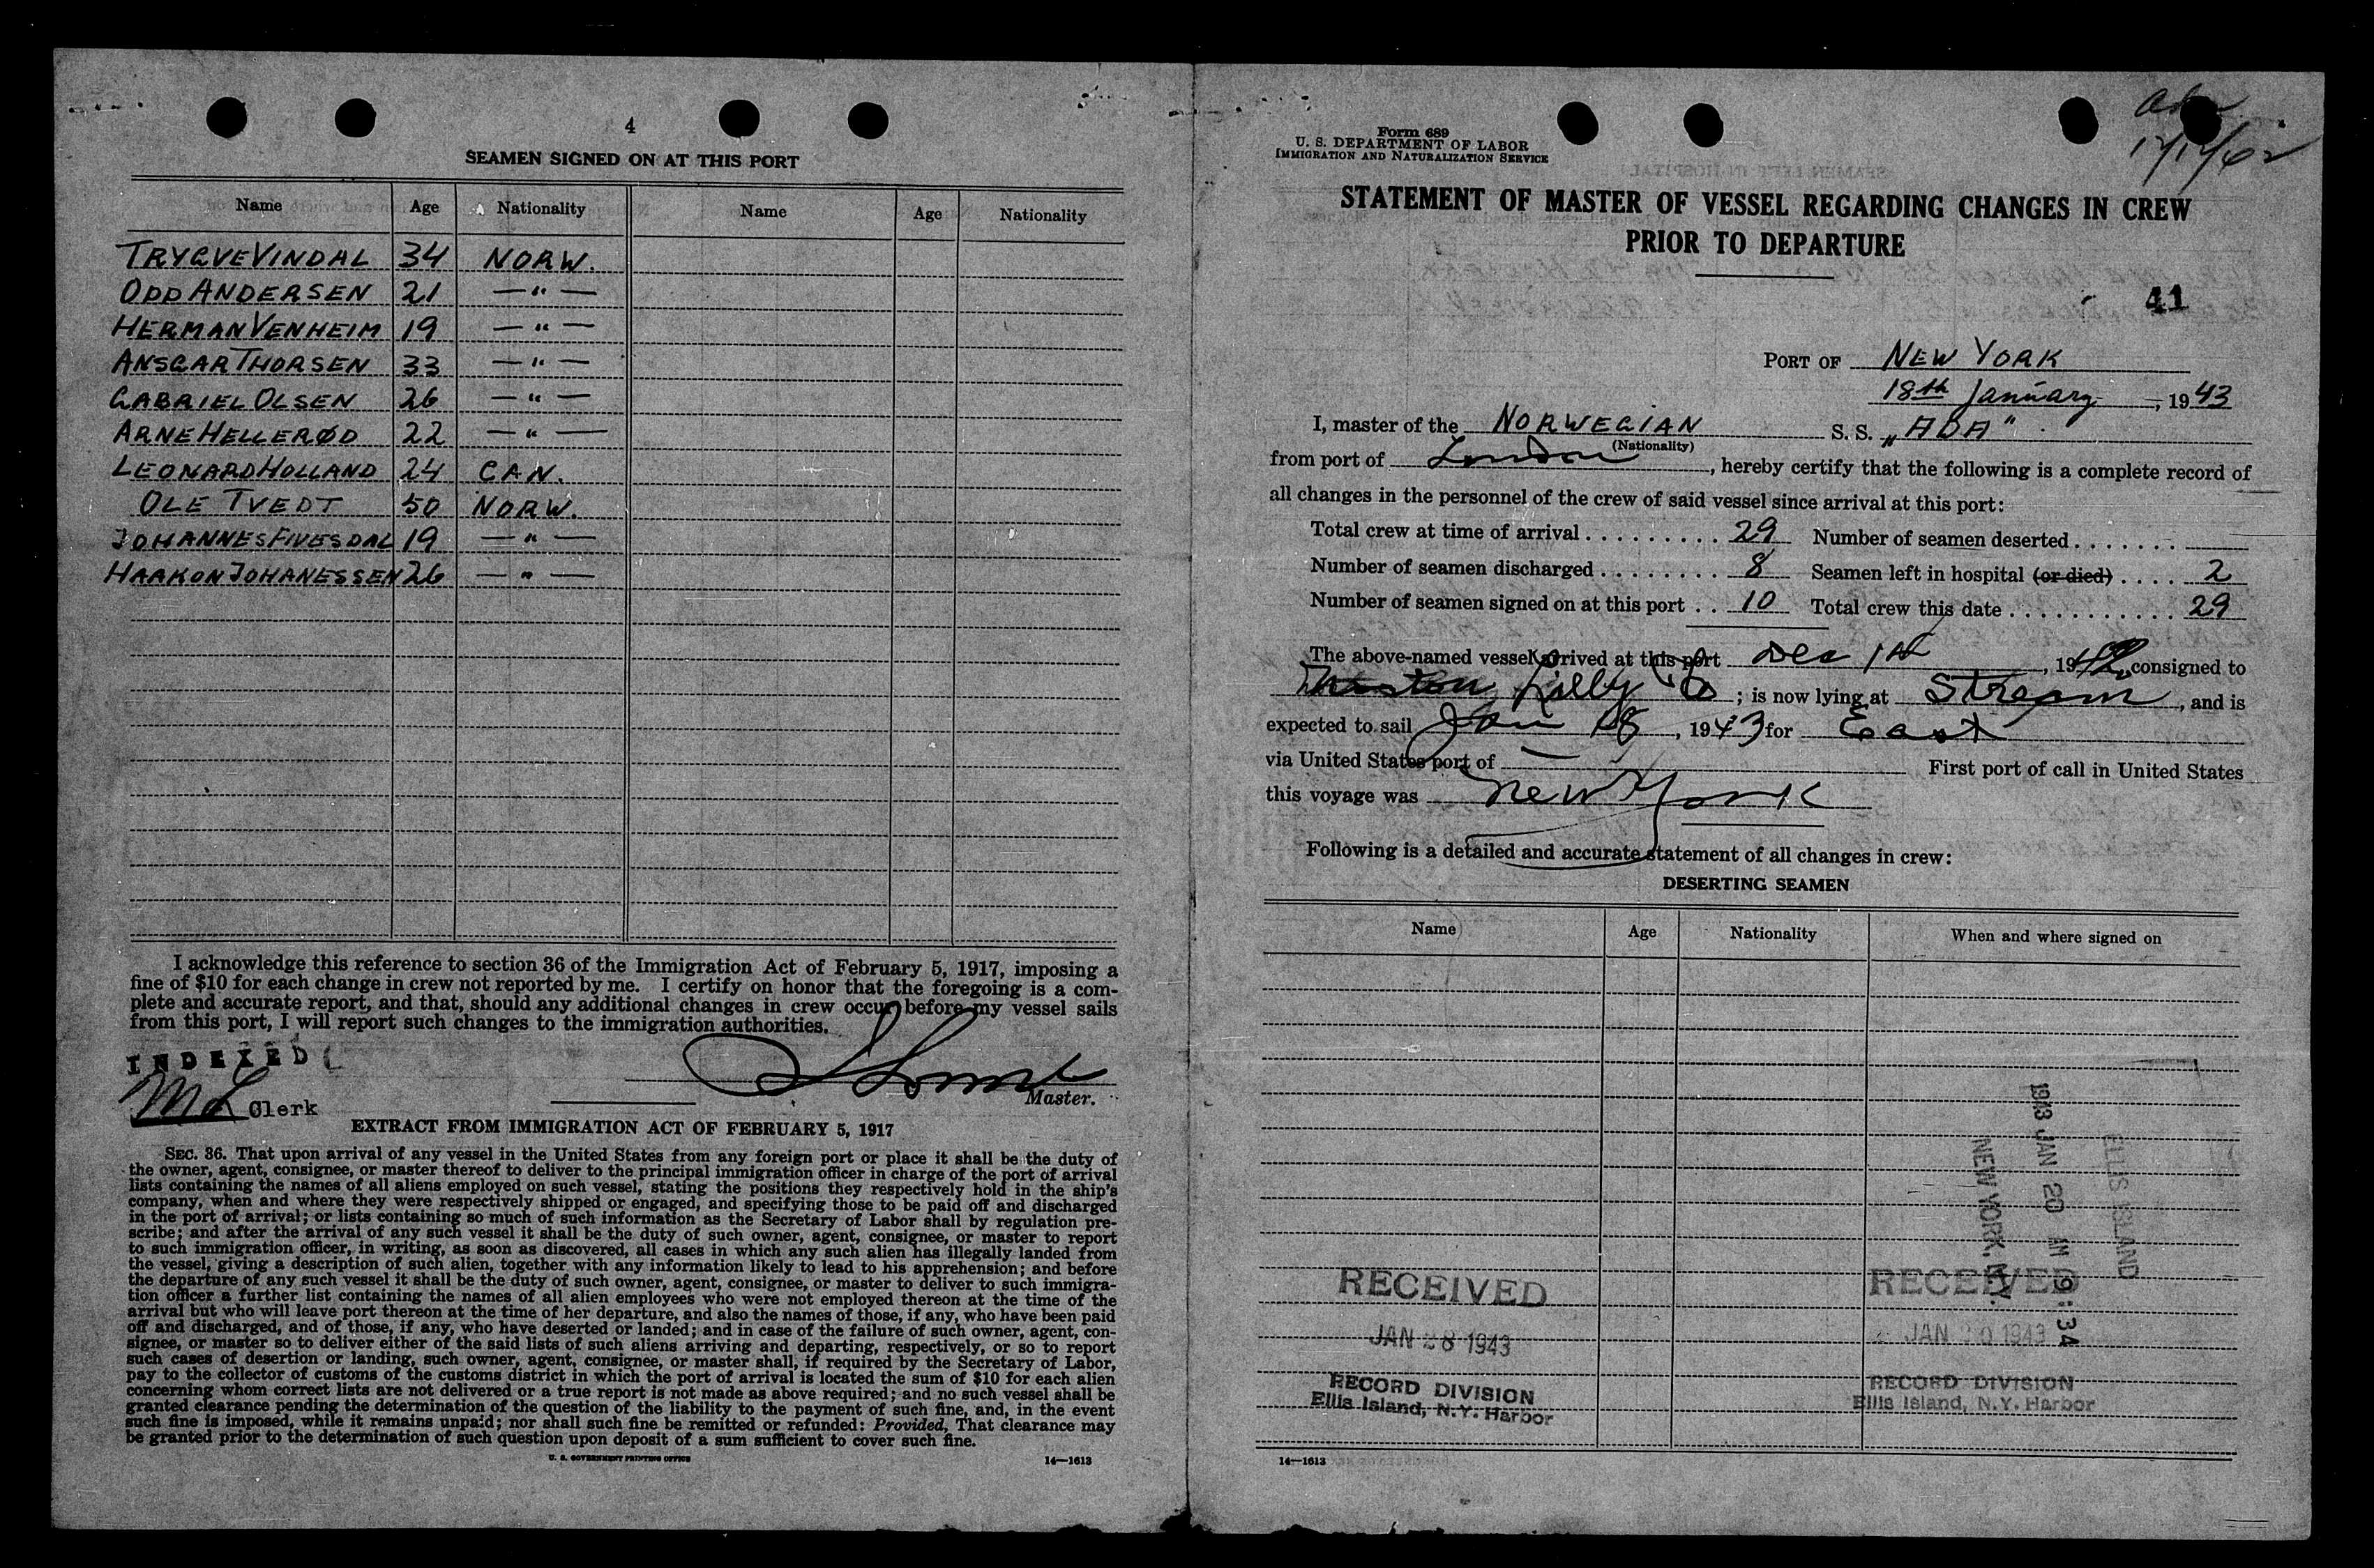 4
SEAMEN SIGNED ON AT THIS PORT
Name Age Nationality Name Age Nationality
TRYGVE VINDAL 34 NORW.
ODD ANDERSEN 21 — " —
HERMAN VENHEIM 19 — " —
ANSGAR THORSEN 33 — " —
GABRIEL OLSEN 26 — " —
ARNE HELLERØD 22 — " —
LEONARD HOLLAND 24 CAN.
OLE TVEDT 50 NORW.
JOHANNES FIVESDAL 19 — " —
HAAKON JOHANESSEN 26 — " —
I acknowledge this reference to section 36 of the Immigration Act of February 5, 1917, imposing a
fine of $10 for each change in crew not reported by me. I certify on honor that the foregoing is a com-
plete and accurate report, and that, should any additional changes in crew occur before my vessel sails
from this port, I will report such changes to the immigration authorities.
INDEXED
Clerk
Master.
EXTRACT FROM IMMIGRATION ACT OF FEBRUARY 5, 1917
SEC. 36. That upon arrival of any vessel in the United States from any foreign port or place it shall be the duty of
the owner, agent, consignee, or master thereof to deliver to the principal immigration officer in charge of the port of arrival
lists containing the names of all aliens employed on such vessel, stating the positions they respectively hold in the ship's
company, when and where they were respectively shipped or engaged, and specifying those to be paid off and discharged
in the port of arrival; or lists containing so much of such information as the Secretary of Labor shall by regulation pre-
scribe; and after the arrival of any such vessel it shall be the duty of such owner, agent, consignee, or master to report
to such immigration officer, in writing, as soon as discovered, all cases in which any such alien has illegally landed from
the vessel, giving a description of such alien, together with any information likely to lead to his apprehension; and before
the departure of any such vessel it shall be the duty of such owner, agent, consignee, or master to deliver to such immigra-
tion officer a further list containing the names of all alien employees who were not employed thereon at the time of the
arrival but who will leave port thereon at the time of her departure, and also the names of those, if any, who have been paid
off and discharged, and of those, if any, who have deserted or landed; and in case of the failure of such owner, agent, con-
signee, or master so to deliver either of the said lists of such aliens arriving and departing, respectively, or so to report
such cases of desertion or landing, such owner, agent, consignee, or master shall, if required by the Secretary of Labor,
pay to the collector of customs of the customs district in which the port of arrival is located the sum of $10 for each alien
concerning whom correct lists are not delivered or a true report is not made as above required; and no such vessel shall be
granted clearance pending the determination of the question of the liability to the payment of such fine, and, in the event
such fine is imposed, while it remains unpaid; nor shall such fine be remitted or refunded: Provided, That clearance may
be granted prior to the determination of such question upon deposit of a sum sufficient to cover such fine.
U. S. GOVERNMENT PRINTING OFFICE 14—1613
Form 689
U. S. DEPARTMENT OF LABOR
IMMIGRATION AND NATURALIZATION SERVICE
STATEMENT OF MASTER OF VESSEL REGARDING CHANGES IN CREW
PRIOR TO DEPARTURE
41
PORT OF NEW YORK
18th January, 1943
I, master of the NORWEGIAN S. S. „ADA"
(Nationality)
from port of London, hereby certify that the following is a complete record of
all changes in the personnel of the crew of said vessel since arrival at this port:
Total crew at time of arrival . . . . . . . . . 29 Number of seamen deserted . . . . . . .
Number of seamen discharged . . . . . . . . 8 Seamen left in hospital (or died) . . . . 2
Number of seamen signed on at this port . . 10 Total crew this date . . . . . . . . . . . . 29
The above-named vessel arrived at this port Dec, 1942, consigned to
Lilly Co; is now lying at Stream, and is
expected to sail Jan 18, 1943 for East
via United States port of — First port of call in United States
this voyage was New York
Following is a detailed and accurate statement of all changes in crew:
DESERTING SEAMEN
Name Age Nationality When and where signed on
1943 JAN 20 AM 9:34
ELLIS ISLAND
NEW YORK, N.Y.
RECEIVED
JAN 28 1943
RECORD DIVISION
Ellis Island, N.Y. Harbor
RECEIVED
JAN 20 1943
RECORD DIVISION
Ellis Island, N.Y. Harbor
14—1613